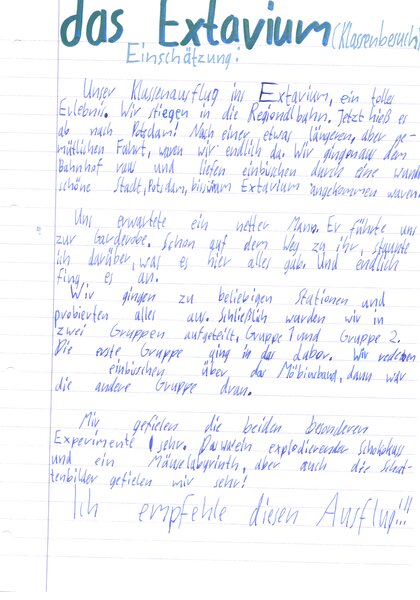 das Extavium (Klassenbesuch)
Einschätzung:
Unser Klassenausflug ins Extavium, ein tolles
Erlebnis. Wir stiegen in die Regionalbahn. Jetzt hieß es
ab nach Potsdam! Nach einer, etwas längeren, aber ge-
mütlichen Fahrt, waren wir endlich da. Wir gingen aus dem
Bahnhof raus und liefen einbüschen durch eine wunder
schöne Stadt, Potsdam, bis wir am Extavium angekommen waren.
Uns erwartete ein netter Mann. Er führte uns
zur Garderobe. Schon auf dem Weg zu ihr, staunte
ich darüber, was es hier alles gab. Und endlich
fing es an.
Wir gingen zu beliebigen Stationen und
probierten alles aus. Schließlich wurden wir in
zwei Gruppen aufgeteilt, Gruppe 1 und Gruppe 2.
Die erste Gruppe ging in das Labor. Wir redeten
einbüschen über das Möbiusband, dann war
die andere Gruppe dran.
Mir gefielen die beiden besonderen
Experimente sehr. Das waren explodierender Schokokuss
und ein Mäuselabyrinth, aber auch die Schat-
tenbilder gefielen mir sehr!
Ich empfehle diesen Ausflug!!!